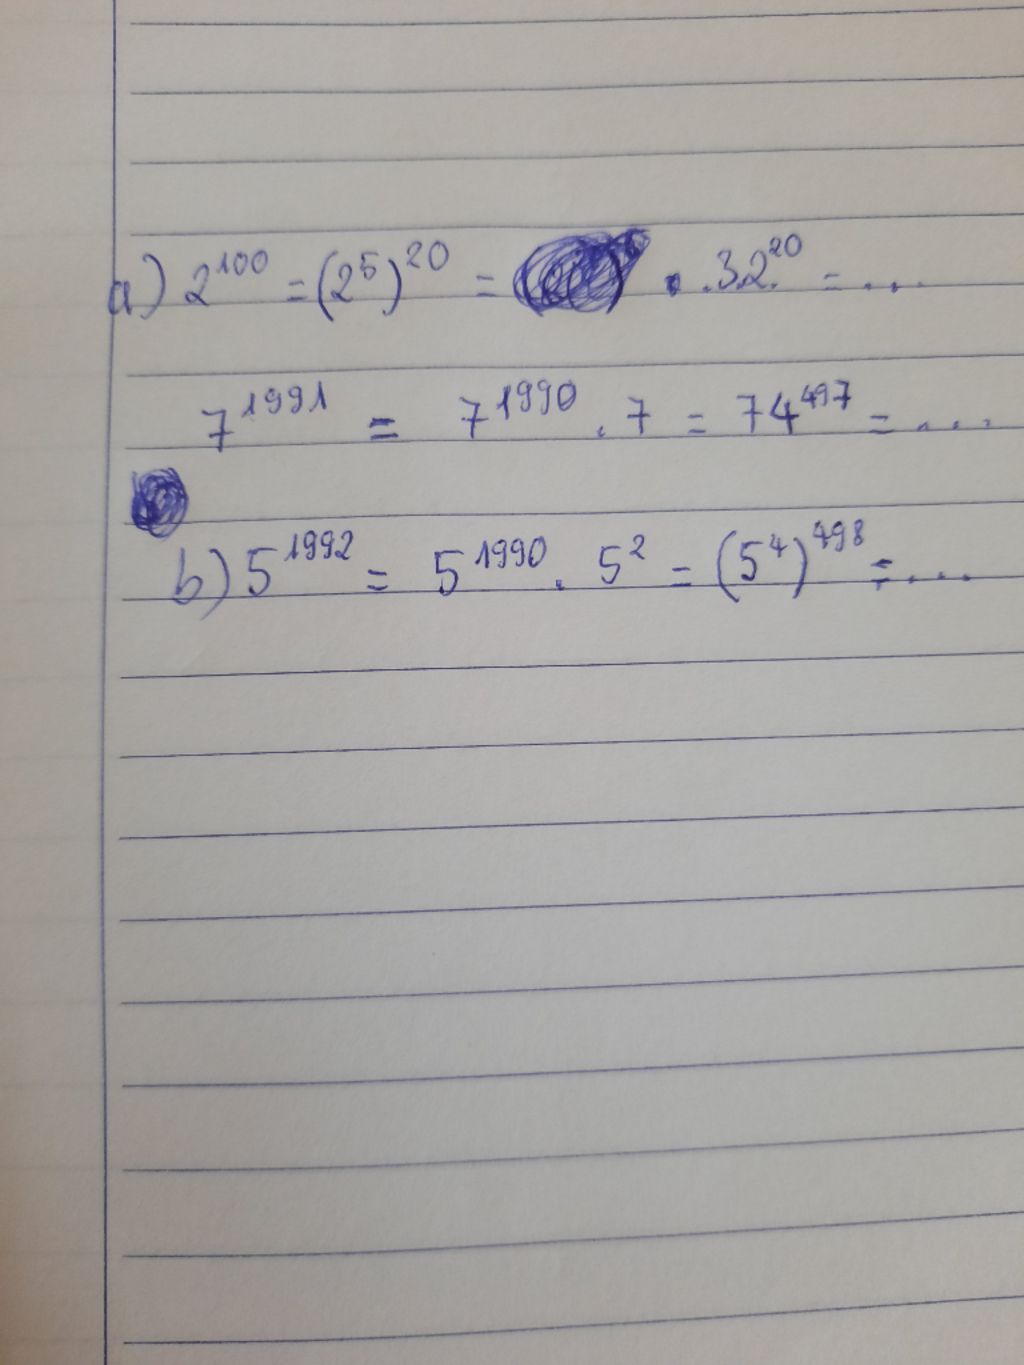 a) 2¹⁰⁰ = (2⁵)²⁰ = . 32²⁰ = ...
7¹⁹⁹¹ = 7¹⁹⁹⁰ . 7 = 74⁴⁹⁷ = ...
b) 5¹⁹⁹² = 5¹⁹⁹⁰ . 5² = (5⁴)⁴⁹⁸ = ...